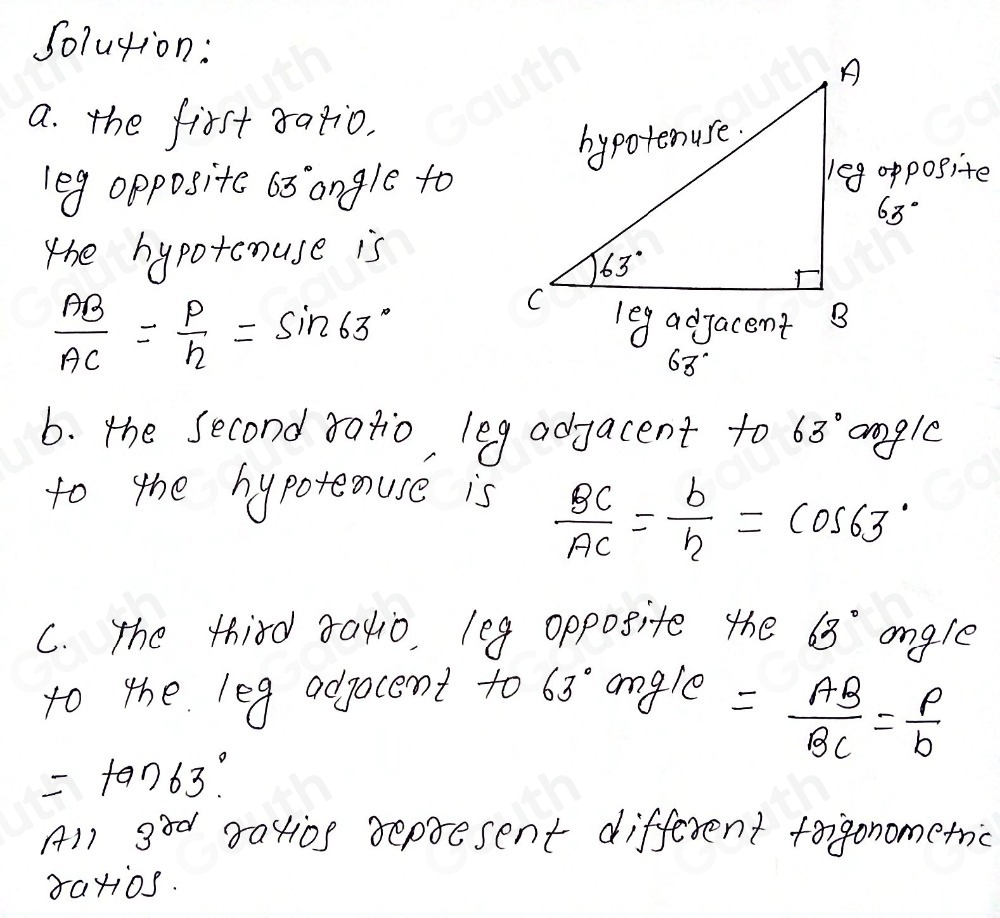 Solution:
a. the first ratio,
leg opposite 63° angle to
the hypotenuse is
AB/AC = p/h = sin63°
A
hypotenuse.
leg opposite
63°
63°
C
leg adjacent
63°
B
b. the second ratio, leg adjacent to 63° angle
to the hypotenuse is BC/AC = b/h = cos63°
c. The third ratio, leg opposite the 63° angle
to the leg adjacent to 63° angle = AB/BC = p/b
= tan63°.
All 3rd ratios represent different trigonometric
ratios.
Gauth